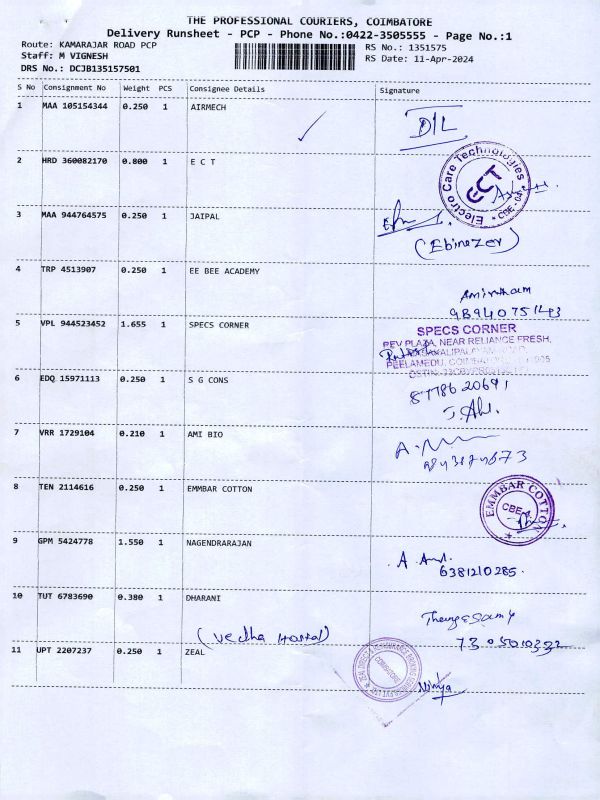 THE PROFESSIONAL COURIERS, COIMBATORE
Delivery Runsheet - PCP - Phone No.:0422-3505555 - Page No.:1
Route: KAMARAJAR ROAD PCP
RS No.: 1351575
Staff: M VIGNESH
RS Date: 11-Apr-2024
DRS No.: DCJB135157501
S No Consignment No Weight PCS Consignee Details Signature
1 MAA 105154344 0.250 1 AIRMECH
D/L
2 HRD 360082170 0.800 1 E C T
Electro Care Technologies
ECT
* CBE - 04 *
3 MAA 944764575 0.250 1 JAIPAL
(Ebinezer)
4 TRP 4513907 0.250 1 EE BEE ACADEMY
5 VPL 944523452 1.655 1 SPECS CORNER
SPECS CORNER
PEV PLAZA, NEAR RELIANCE FRESH,
6 EDQ 15971113 0.250 1 S G CONS
7 VRR 1729104 0.210 1 AMI BIO
8 TEN 2114616 0.250 1 EMMBAR COTTON
EMMBAR COTTON
9 GPM 5424778 1.550 1 NAGENDRARAJAN
6381210285.
10 TUT 6783690 0.380 1 DHARANI
11 UPT 2207237 0.250 1 ZEAL